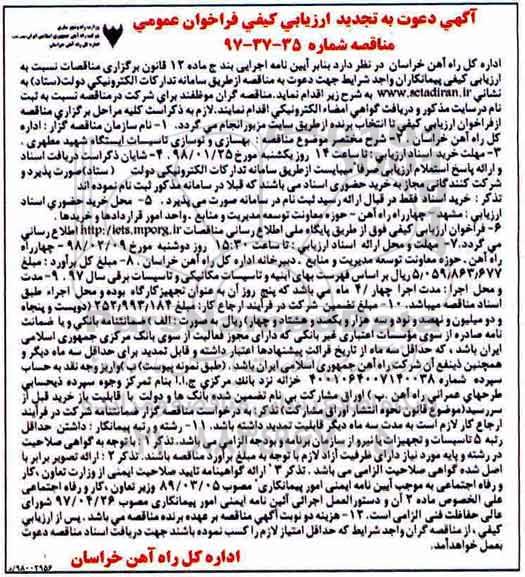 آگهي دعوت به تجديد ارزيابي كيفي فراخوان عمومي
مناقصه شماره ۳۵-۳۷-۹۷
وزارت راه و شهرسازی
اداره کل راه آهن خراسان
اداره کل راه آهن خراسان در نظر دارد بنابر آیین نامه اجرایی بند ج ماده ۱۲ قانون برگزاری مناقصات نسبت به
ارزیابی کیفی پیمانکاران واجد شرایط جهت دعوت به مناقصه ازطریق سامانه تدارکات الکترونیکی دولت(ستاد) به
نشانی www.setadiran.ir به شرح زیر اقدام نماید.مناقصه گران موظفند برای شرکت در مناقصه نسبت به ثبت
نام درسایت مذکور و دریافت گواهی امضاء الکترونیکی اقدام نمایند.لازم به ذکراست کلیه مراحل برگزاری مناقصه
ازفراخوان ارزیابی کیفی تا انتخاب برنده ازطریق سایت مزبورانجام می گردد. ۱- نام سازمان مناقصه گزار : اداره
کل راه آهن خراسان . ۲- شرح مختصر موضوع مناقصه : بهسازی و نوسازی تاسیسات ایستگاه شهید مطهری .
۳- مهلت خرید اسناد ارزیابی : تا ساعت ۱۴ روز یکشنبه مورخ ۹۸/۰۱/۲۵ .۴- شایان ذکراست دریافت اسناد
و ارائه پاسخ استعلام ارزیابی صرفا میبایست ازطریق سامانه تدارکات الکترونیکی دولت (ستاد) صورت پذیرد و
شرکت کنندگانی مجاز به خرید حضوری اسناد می باشند که قبلا در سامانه مذکور ثبت نام نموده اند.
تذکر : خرید اسناد فقط در قبال ارائه رسید ثبت نام در سامانه صورت می پذیرد . ۵- محل خرید حضوری اسناد
ارزیابی : مشهد - چهارراه راه آهن - حوزه معاونت توسعه مدیریت و منابع . واحد امور قراردادها و خریدها .
۶- فراخوان ارزیابی کیفی فوق از طریق پایگاه ملی اطلاع رسانی مناقصات http://iets.mporg.ir اطلاع رسانی
می گردد.۷- مهلت و محل ارائه اسناد ارزیابی : تا ساعت ۱۵:۳۰ روز دوشنبه مورخ ۹۸/۰۲/۰۹- چهارراه
راه آهن . حوزه معاونت توسعه مدیریت و منابع . دبیرخانه اداره کل راه آهن خراسان .۸- مبلغ کل برآورد : مبلغ
۵/۰۵۹/۸۶۳/۶۷۷ ریال بر اساس فهرست بهای ابنیه و تاسیسات مکانیکی و تاسیسات برقی سال ۹۷ .۹- مدت
و محل اجرا : مدت اجرا چهار /۴/ ماه می باشد که پنج روز آن به عنوان تجهیزکارگاه بوده و محل اجراء طبق
اسناد مناقصه میباشد.۱۰- مبلغ تضمین شرکت در فرآیند ارجاع کار: مبلغ ۲۵۲/۹۹۳/۱۸۴ (دویست و پنجاه
و دو میلیون و نهصد و نود و سه هزار و یکصد و هشتاد و چهار) ریال به صورت : الف )ضمانتنامه بانکی و یا ضمانت
نامه صادره از سوی مؤسسات اعتباری غیر بانکی که دارای مجوز فعالیت از سوی بانک مرکزی جمهوری اسلامی
ایران باشد ، که حداقل سه ماه از تاریخ قرائت پیشنهادها اعتبار داشته و قابل تمدید برای حداقل سه ماه دیگر و
همچنین ذینفع آن شرکت راه آهن جمهوری اسلامی ایران باشد . (طبق نمونه پیوست) ب)واریز وجه نقد به حساب
سپرده شماره ۴۰۰۱۰۶۴۰۰۷۱۴۰۰۳۸ خزانه نزد بانک مرکزی ج.ا.ا بنام تمرکز وجوه سپرده ذیحسابی
طرحهای عمرانی راه آهن ج) اوراق مشارکت بی نام تضمین شده بانک ها و دولت با قابلیت باز خرید قبل از
سررسید(موضوع قانون نحوه انتشار اوراق مشارکت) تذکر: به درخواست مناقصه گزار ضمانتنامه شرکت در فرآیند
ارجاع کار لازم است به مدت سه ماه دیگر قابلیت تمدید داشته باشد. ۱۱- رشته و رتبه پیمانکار : داشتن حداقل
رتبه ۵ تاسیسات و تجهیزات یا نیرو از سازمان برنامه و بودجه الزامی می باشد. تذکر ۱ : با توجه به گواهی صلاحیت
در رشته و پایه مورد نیاز دارای ظرفیت آزاد لازم با توجه به مبلغ برآورد مناقصه باشند. تذکر ۲ : ارائه تصویر برابر با
اصل شده گواهی صلاحیت الزامی می باشد . تذکر ۳ ارائه گواهینامه تایید صلاحیت ایمنی از وزارت تعاون ،کار
و رفاه اجتماعی به موجب آیین نامه ایمنی امور پیمانکاری مصوب ۸۹/۰۳/۰۵ وزیر تعاون ،کار و رفاه اجتماعی
علی الخصوص ماده ۲ آن و دستورالعمل اجرائی آئین نامه ایمنی امور پیمانکاری مصوب ۹۷/۰۴/۲۶ شورای
عالی حفاظت فنی الزامی است. ۱۲- هزینه دو نوبت آگهی مناقصه بر عهده برنده مناقصه می باشد . پس از ارزیابی
کیفی ، از مناقصه گران واجد شرایط که حداقل امتیاز لازم را کسب نموده باشند جهت دریافت اسناد مناقصه دعوت
بعمل خواهدآمد.
اداره کل راه آهن خراسان
۹۸۰۰۲۹۵۶/ف